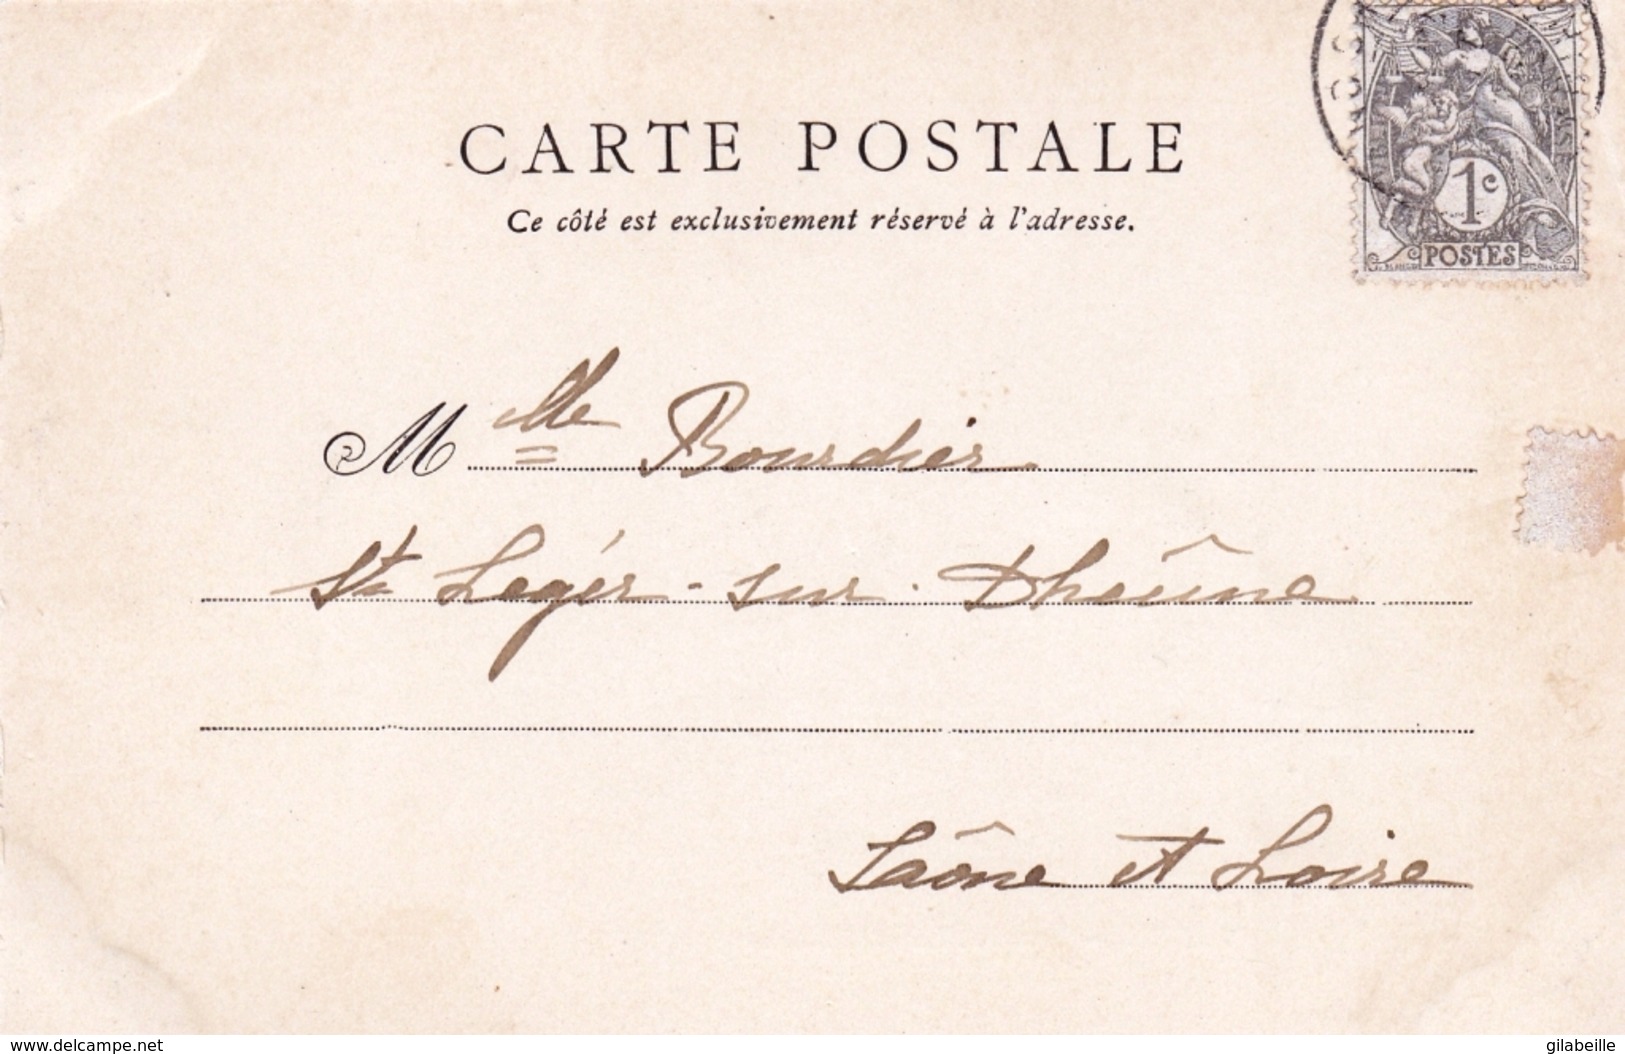 CARTE POSTALE
Ce côté est exclusivement réservé à l'adresse.
1c
POSTES
Mlle Bourdier
St Léger-sur-Dheûne
Saône et Loire
www.delcampe.net
gilabeille